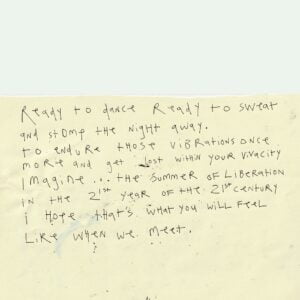 Ready to dance Ready to sweat
and stomp the night away.
to endure those vibrations once
more and get lost within your vivacity
imagine... the summer of liberation
in the 21st year of the 21st century
i hope that's what you will feel
like when we meet.